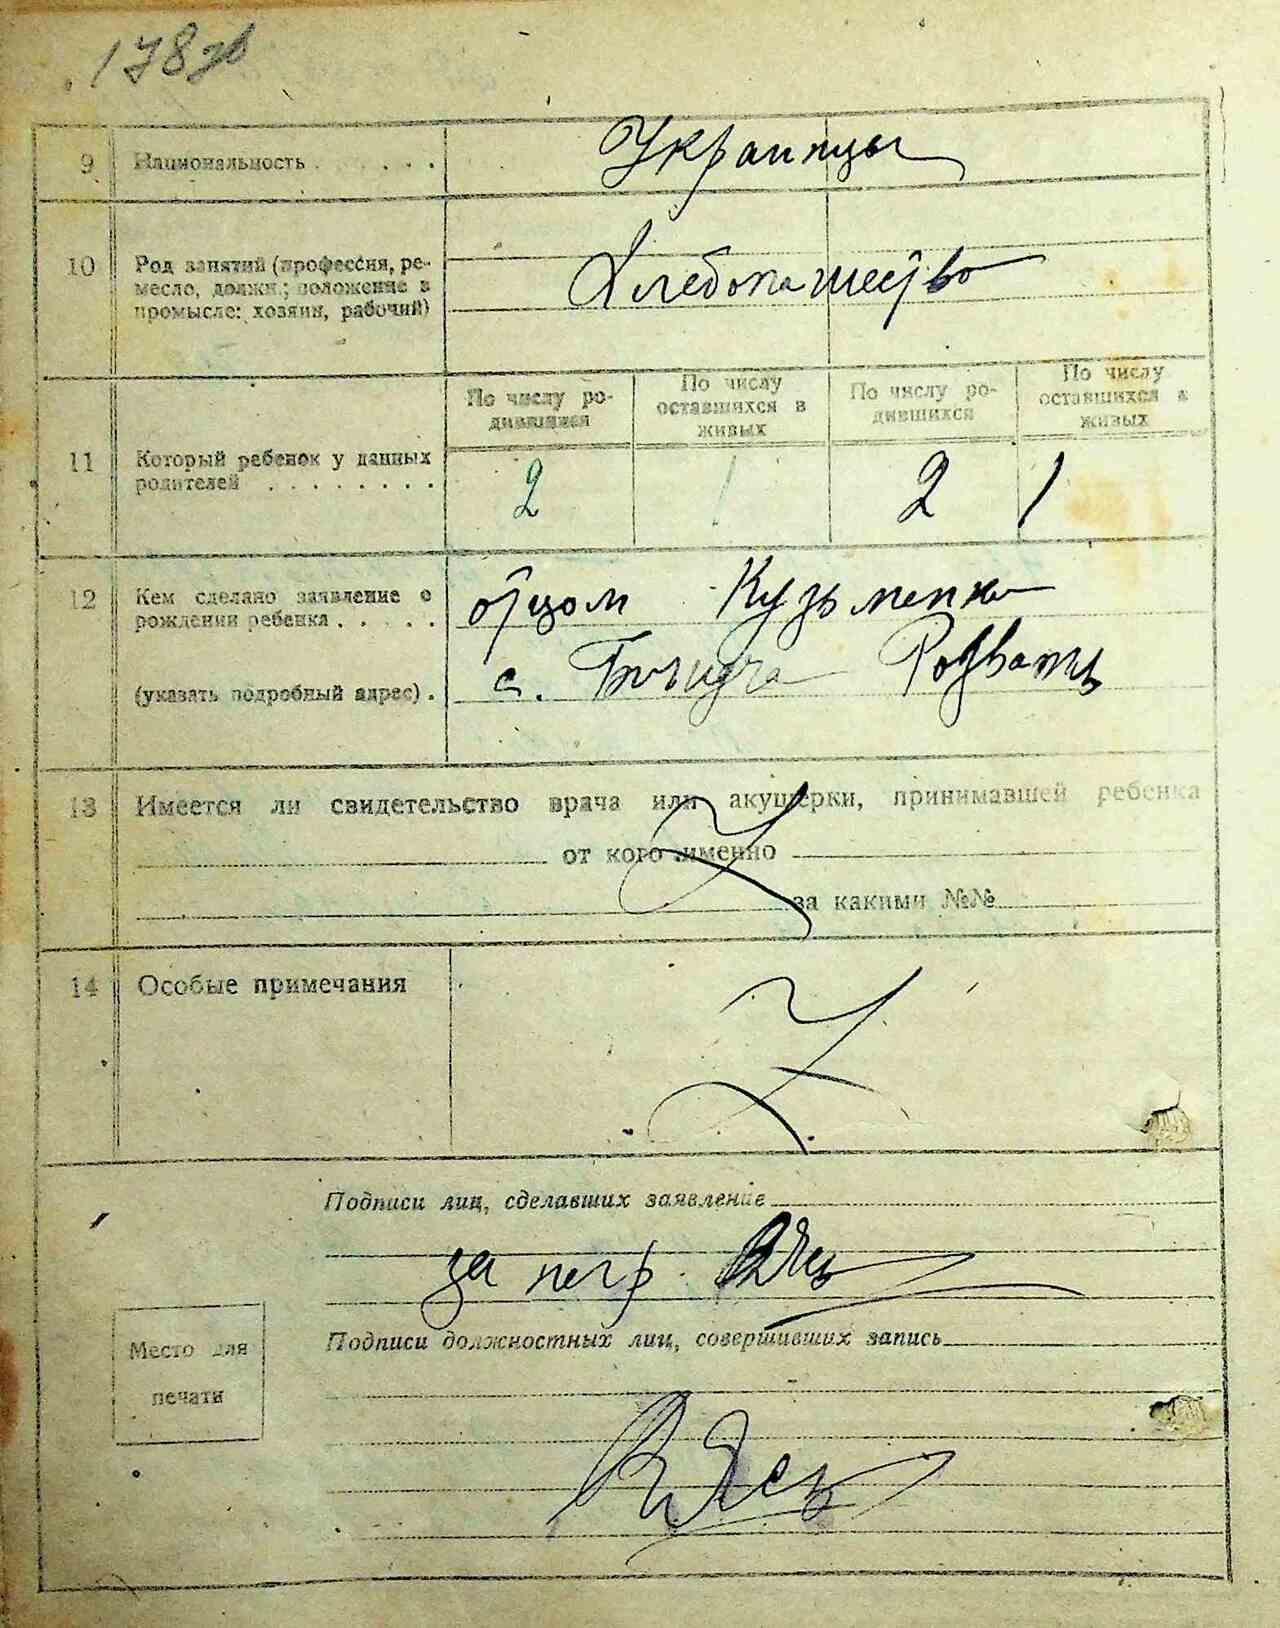 178 зв
9 Национальность . . . . . Украинцы
10 Род занятий (профессия, ре-
месло, должн.; положение в
промысле: хозяин, рабочий)
Хлебопашество
По числу ро-
дившихся
По числу
оставшихся в
живых
По числу ро-
дившихся
По числу
оставшихся в
живых
11 Который ребенок у данных
родителей . . . . . . . .
2 1 2 1
12 Кем сделано заявление о
рождении ребенка . . . . .
отцом Кузьменко
(указать подробный адрес) .
с.
13 Имеется ли свидетельство врача или акушерки, принимавшей ребенка
от кого именно
за какими №№
14 Особые примечания
Подписи лиц, сделавших заявление
за негр.
Подписи должностных лиц, совершивших запись
Место для
печати